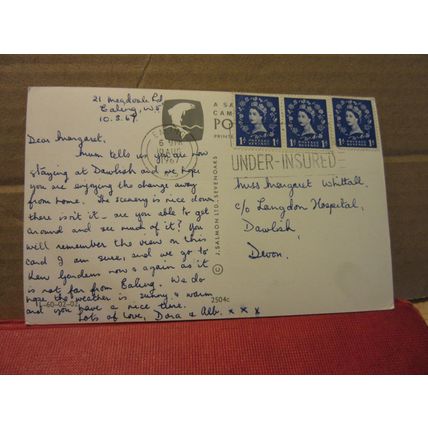 21 Meadvale Rd
Ealing, W5
10.8.67
Dear Margaret,
Mum tells us you are now
staying at Dawlish and we hope
you are enjoying the change away
from home. The scenery is nice down
there isn't it - are you able to get
around and see much of it? You
will remember the view on this
card I am sure, and we go to
Kew Gardens now & again as it
is not far from Ealing. We do
hope the weather is sunny & warm
and you have a nice time.
Lots of love, Dora & Alb. x x x
1-60-02-03
A SA
CAM
PO
PRINTE
6 PM
10 AUG
1967
J. SALMON LTD., SEVENOAKS
2504c
1D 1D
1D 1D
1D 1D
UNDER-INSURED
Miss Margaret Whittall
c/o Langdon Hospital,
Dawlish,
Devon.